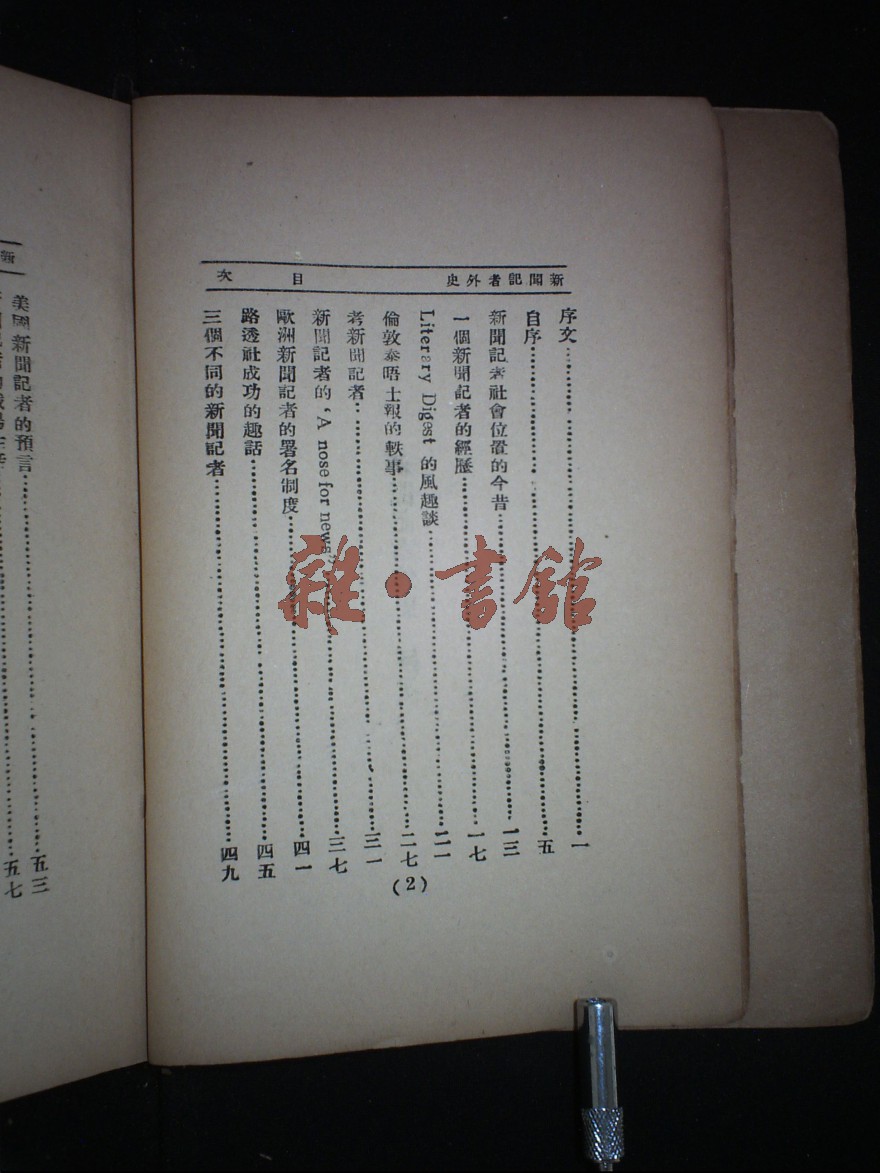 新聞記者外史 目次
序文……一
自序……五
新聞記者社會位置的今昔……一三
一個新聞記者的經歷……一七
Literary Digest 的風趣談……二一
倫敦泰晤士報的軼事……二七
考新聞記者……三一
新聞記者的‘A nose for news’……三七
歐洲新聞記者的署名制度……四一
路透社成功的趣話……四五
三個不同的新聞記者……四九
(2)
雜·書館
新
美國新聞記者的預言……五三
五七